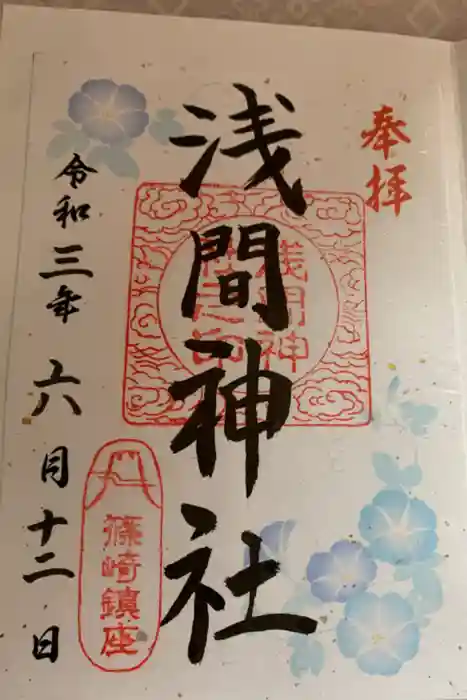 奉拝
浅間神社
浅間神
社之印
篠崎鎮座
令和三年六月十二日